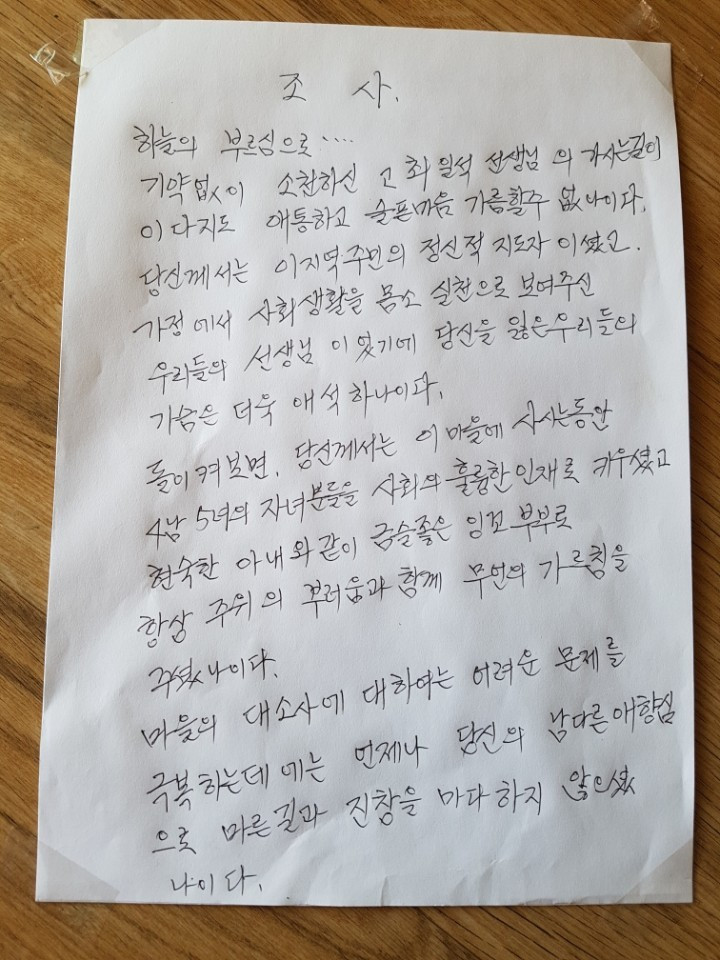 조 사.
하늘의 부르심으로....
기약없이 소천하신 고 최일석 선생님의 가시는길이
이다지도 애통하고 슬픈마음 가름할수 없나이다.
당신께서는 이지역주민의 정신적 지도자 이셨고.
가정에서 사회생활을 몸소 실천으로 보여주신
우리들의 선생님 이었기에 당신을 잃은우리들의
가슴은 더욱 애석하나이다.
돌이켜보면, 당신께서는 이 마을에 사시는동안
4남 5녀의 자녀분들을 사회의 훌륭한인재로 키우셨고
현숙한 아내와같이 금슬좋은 잉꼬부부로
항상 주위의 부러움과 함께 무언의 가르침을
주셨나이다.
마을의 대소사에 대하여는 어려운 문제를
극복하는데에는 언제나 당신의 남다른애향심
으로 마른길과 진창을 마다하지 않으셨
나이다.